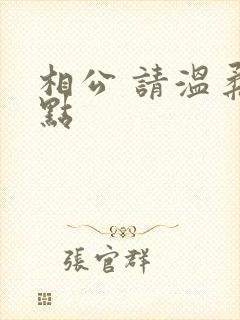 相公 請溫柔
點
張官群